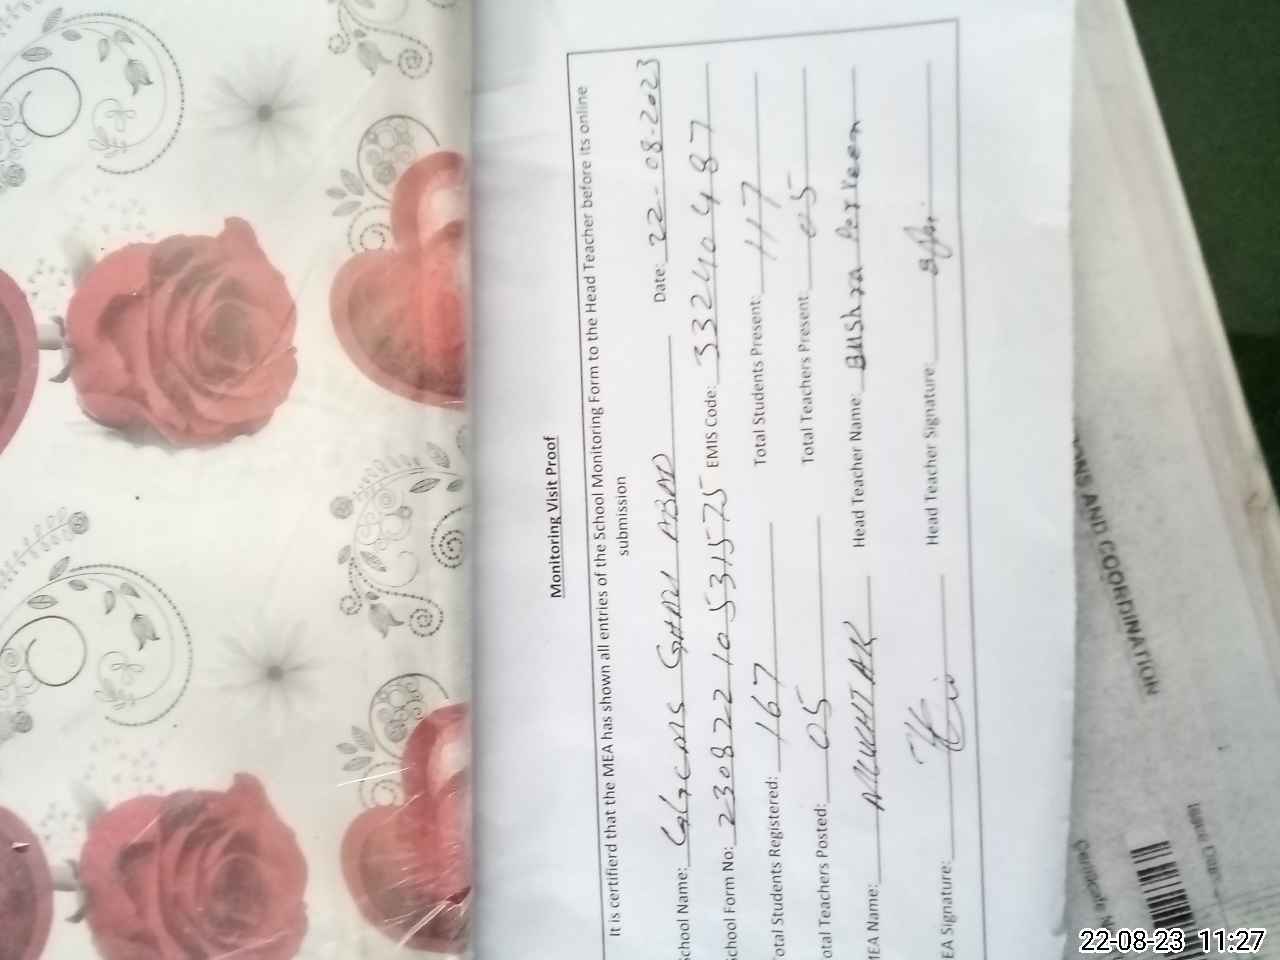 Monitoring Visit Proof
It is certifierd that the MEA has shown all entries of the School Monitoring Form to the Head Teacher before its online
submission
chool Name: GGCMS GHANI ABAD Date: 22-08-2023
chool Form No: 23082210531575 EMIS Code: 33240487
otal Students Registered: 167 Total Students Present: 117
otal Teachers Posted: 05 Total Teachers Present: 05
MEA Name: MUKHTAR Head Teacher Name: Bushra Perveen
EA Signature: Head Teacher Signature:
ONS AND COORDINATION
22-08-23 11:27